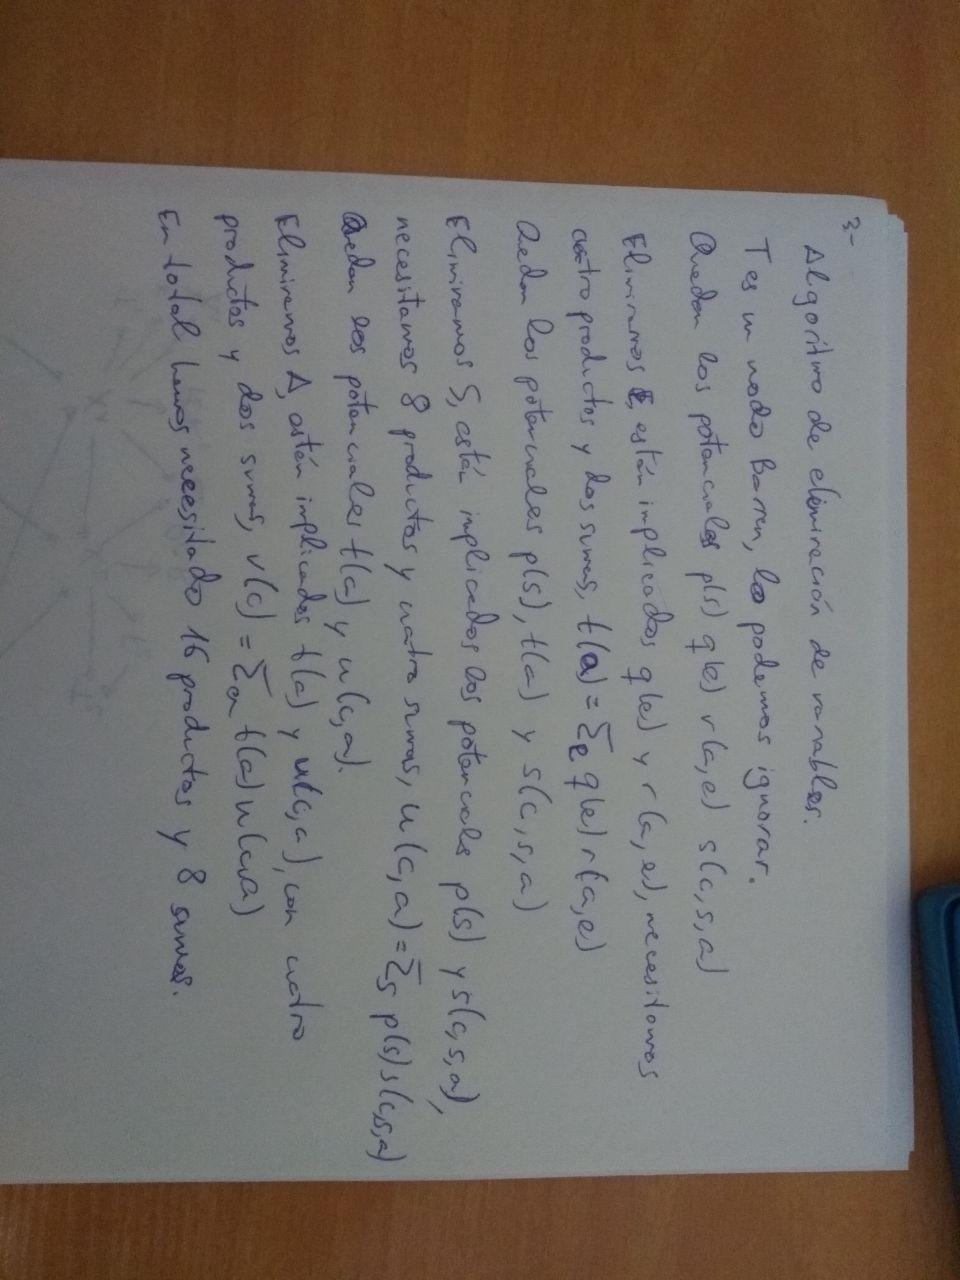 3-
Algoritmo de eliminación de variables.
T es un nodo Barren, lo podemos ignorar.
Quedan los potenciales p(s) q(e) r(a,e) s(c,s,a)
Eliminamos E, están implicados q(e) y r(a,e), necesitamos
cuatro productos y dos sumas, t(a) = Σe q(e) r(a,e)
Quedan los potenciales p(s), t(a) y s(c,s,a)
Eliminamos S, está implicados los potenciales p(s) y s(c,s,a),
necesitamos 8 productos y cuatro sumas, u(c,a) = Σs p(s) s(c,s,a)
Quedan los potenciales t(a) y u(c,a).
Eliminamos A, están implicados t(a) y u(c,a), con cuatro
productos y dos sumas, v(c) = Σa t(a) u(c,a)
En total hemos necesitado 16 productos y 8 sumas.